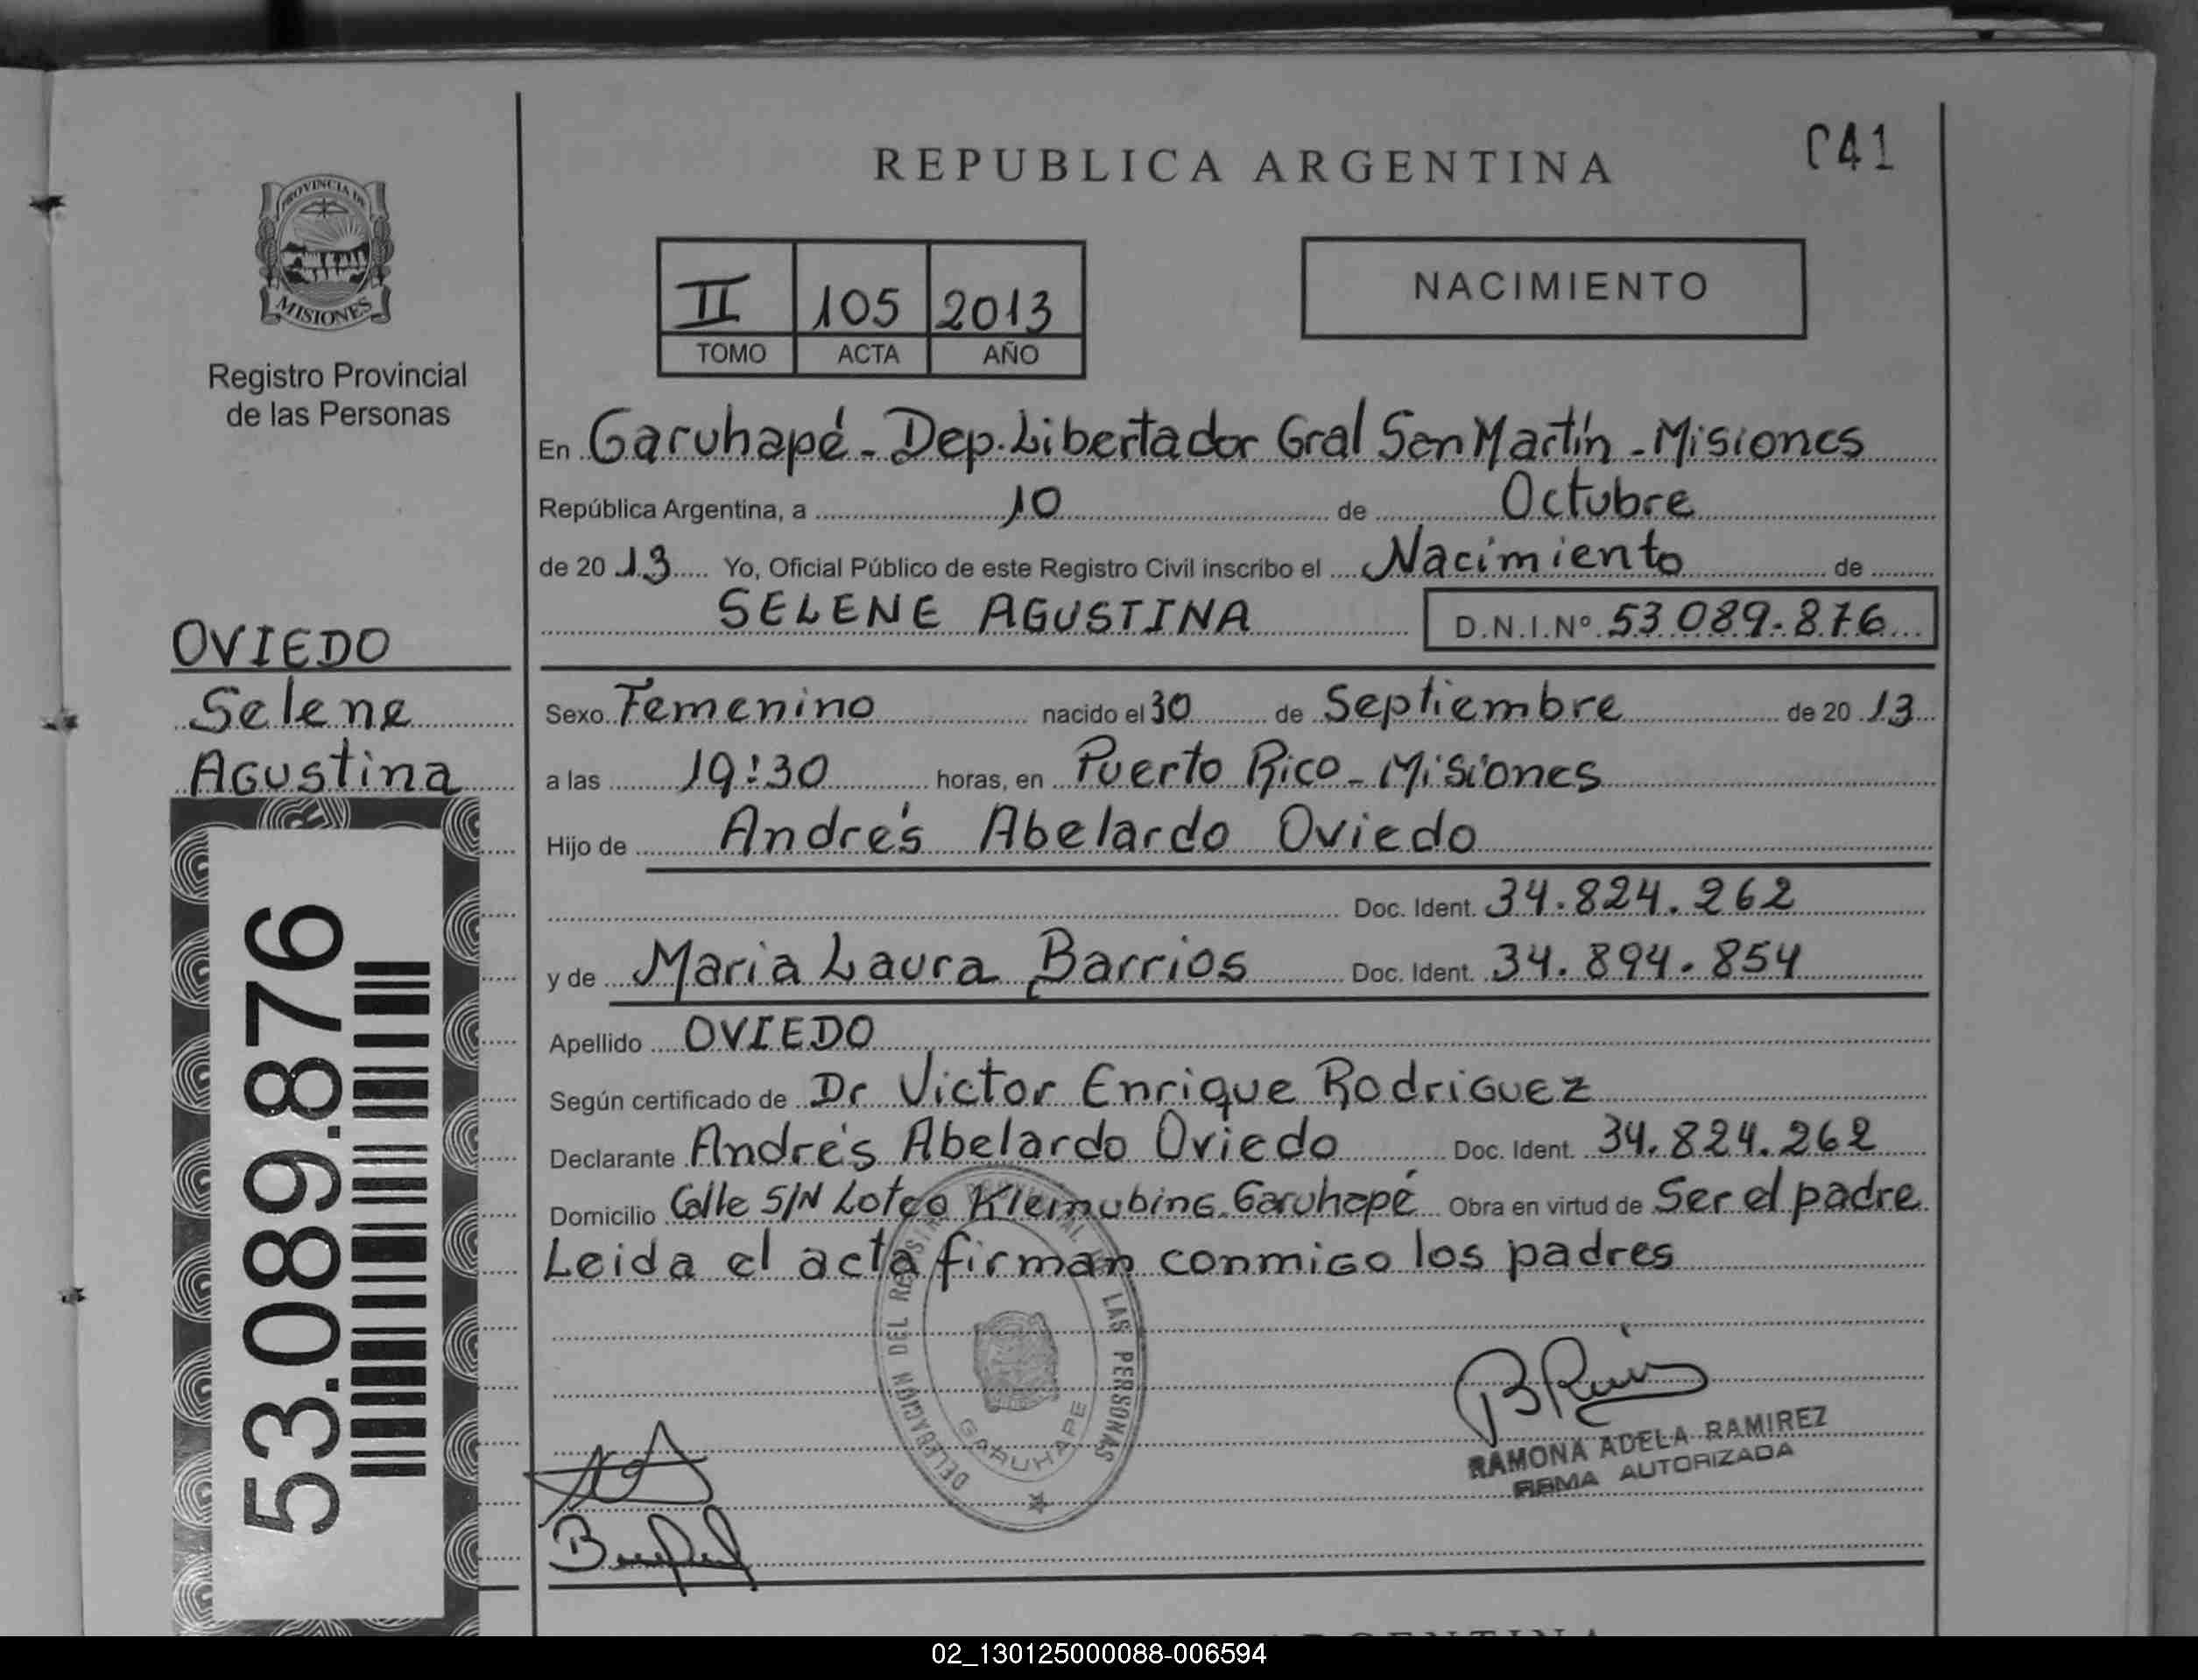 REPUBLICA ARGENTINA
041
PROVINCIA DE
MISIONES
Registro Provincial
de las Personas
II 105 2013
TOMO ACTA AÑO
NACIMIENTO
En Garuhapé - Dep. Libertador Gral San Martín - Misiones
República Argentina, a 10 de Octubre
de 20 13 Yo, Oficial Público de este Registro Civil inscribo el Nacimiento de
SELENE AGUSTINA D.N.I.Nº 53 089.876
OVIEDO
Selene
Agustina
53.089.876
Sexo Femenino nacido el 30 de Septiembre de 20 13
a las 19:30 horas, en Puerto Rico - Misiones
Hijo de Andrés Abelardo Oviedo
Doc. Ident. 34.824.262
y de Maria Laura Barrios Doc. Ident. 34.894.854
Apellido OVIEDO
Según certificado de Dr Victor Enrique Rodriguez
Declarante Andrés Abelardo Oviedo Doc. Ident. 34.824.262
Domicilio Calle S/N Loteo Garuhapé Obra en virtud de Ser el padre
Leida el acta firman conmigo los padres
DELEGACION DEL REGISTRO PROVINCIAL DE LAS PERSONAS
GARUHAPE
RAMONA ADELA RAMIREZ
FIRMA AUTORIZADA
ARGENTINA
02_130125000088-006594